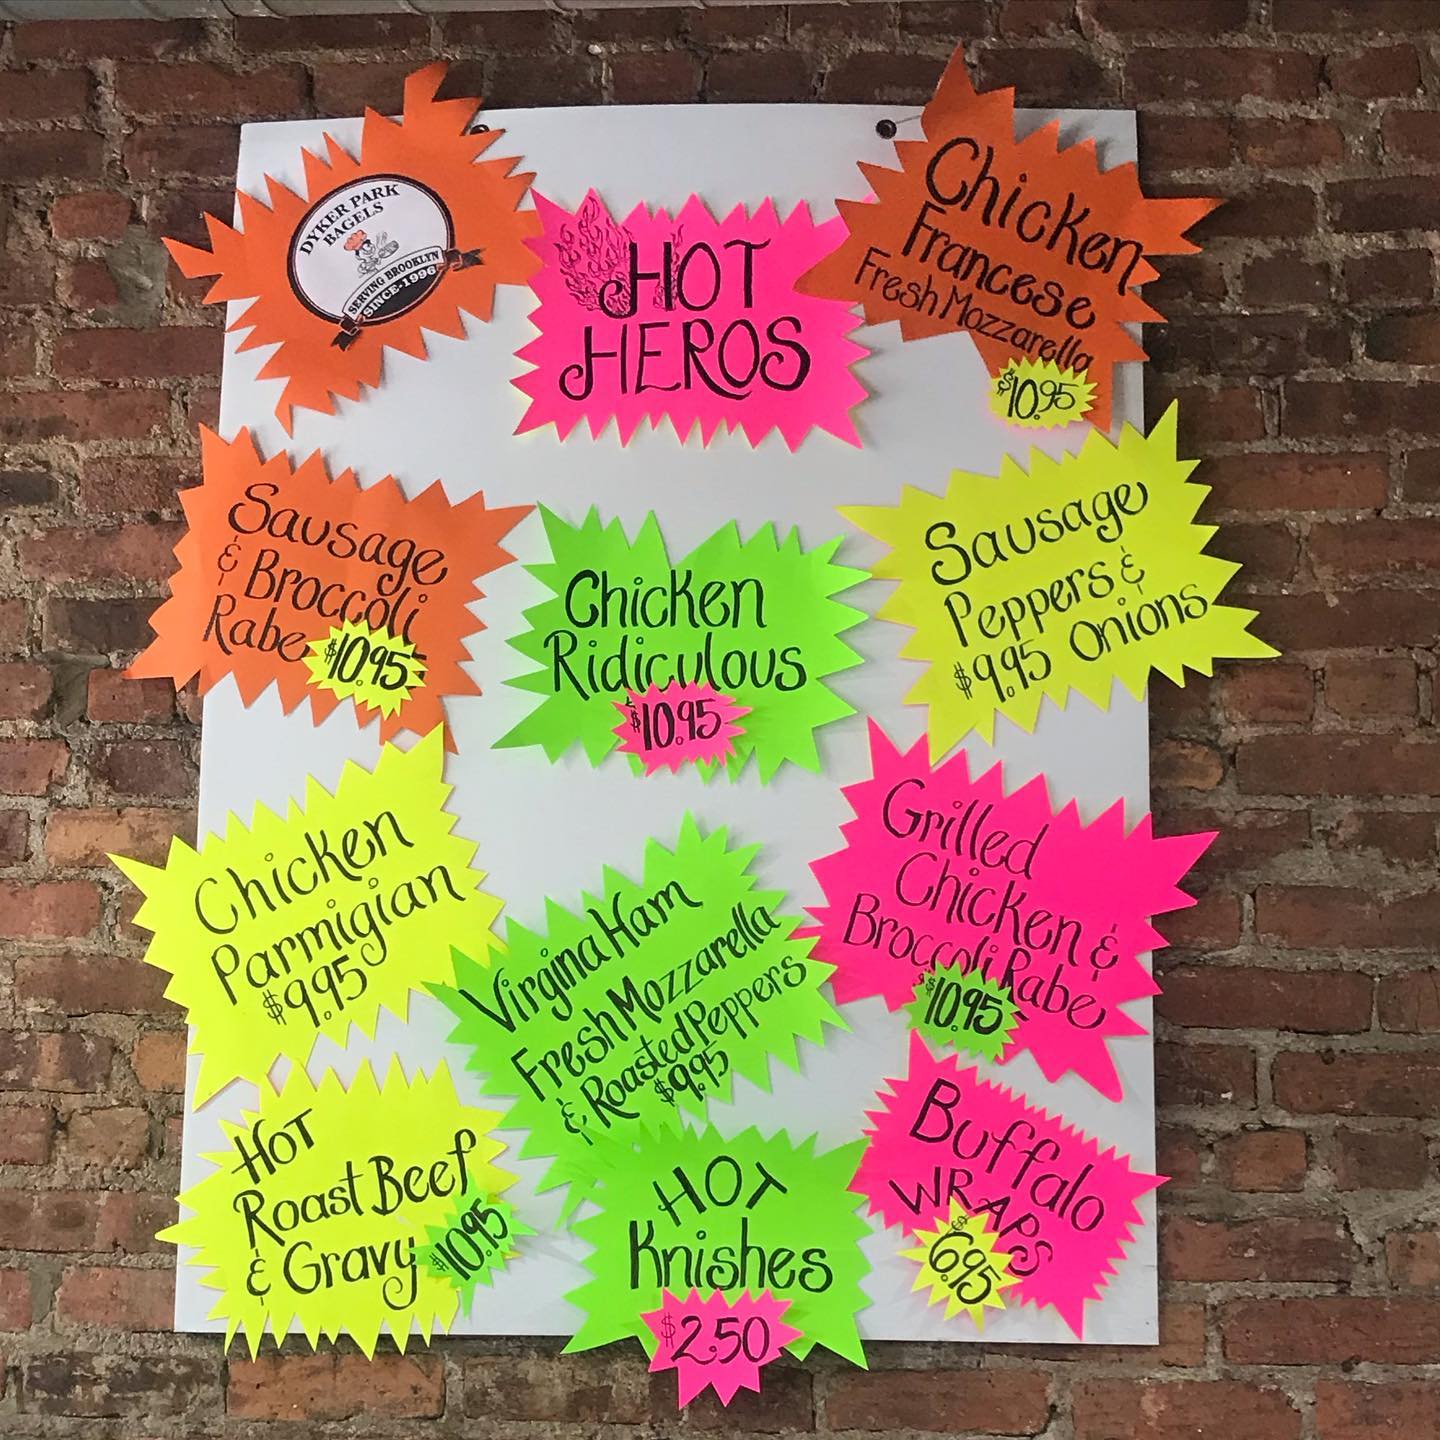 DYKER PARK
BAGELS
SERVING BROOKLYN
SINCE-1996
HOT
HEROS
Chicken
Francese
Fresh Mozzarella
$10.95
Sausage
& Broccoli
Rabe
$10.95
Chicken
Ridiculous
$10.95
Sausage
Peppers &
$9.95 Onions
Chicken
Parmigian
$9.95
Virgina Ham
Fresh Mozzarella
& Roasted Peppers
$9.95
Grilled
Chicken &
Broccoli Rabe
$10.95
HOT
Roast Beef
& Gravy
$10.95
HOT
Knishes
$2.50
Buffalo
WRAPS
$6.95